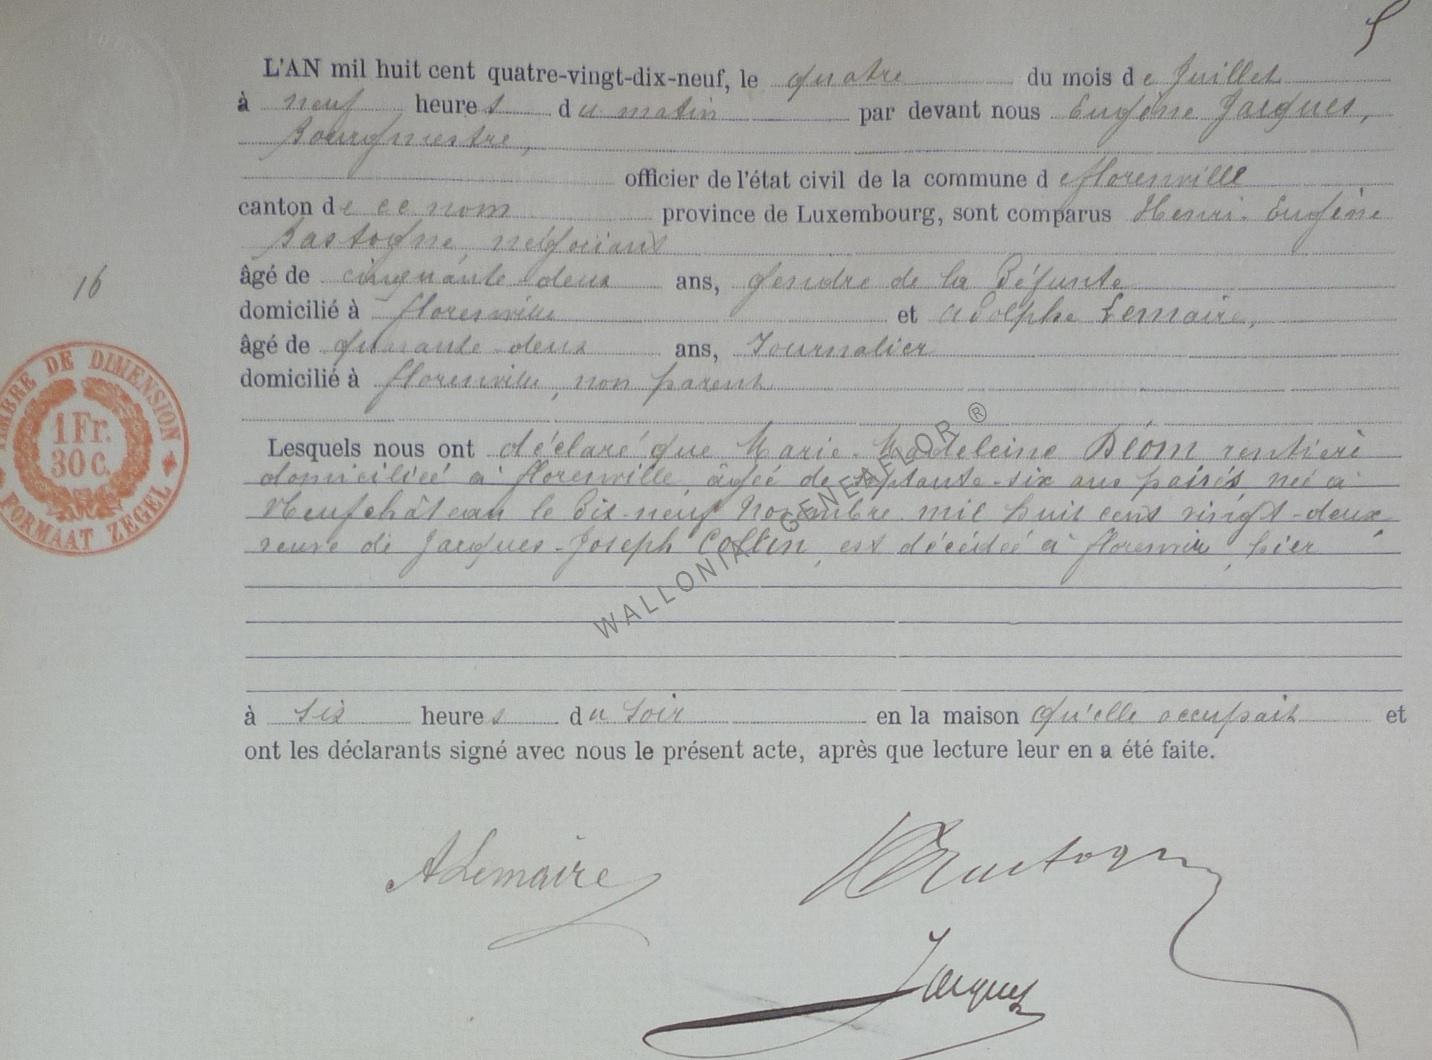 5
L'AN mil huit cent quatre-vingt-dix-neuf, le quatre du mois de Juillet
à neuf heures du matin par devant nous Eugène Jacques,
Bourgmestre,
officier de l'état civil de la commune de Florenville
canton de ce nom province de Luxembourg, sont comparus Henri-Eugène
Bastogne, négociant
16
âgé de cinquante-deux ans, gendre de la Défunte
domicilié à Florenville et Adolphe Lemaire,
âgé de quarante-deux ans, Journalier
domicilié à Florenville, non parent
TIMBRE DE DIMENSION
1 Fr.
30 C.
FORMAAT ZEGEL
Lesquels nous ont déclaré que Marie-Madeleine DÉOM rentière
domiciliée à Florenville, âgée de septante-six ans passés, née à
Neufchâteau le Dix-neuf Novembre mil huit cent vingt-deux,
veuve de Jacques-Joseph Collin, est décédée à Florenville, hier
WALLONIA GENEAFLOR ®
à six heures du soir en la maison qu'elle occupait et
ont les déclarants signé avec nous le présent acte, après que lecture leur en a été faite.
ALemaire
HEBastogne
Jacques